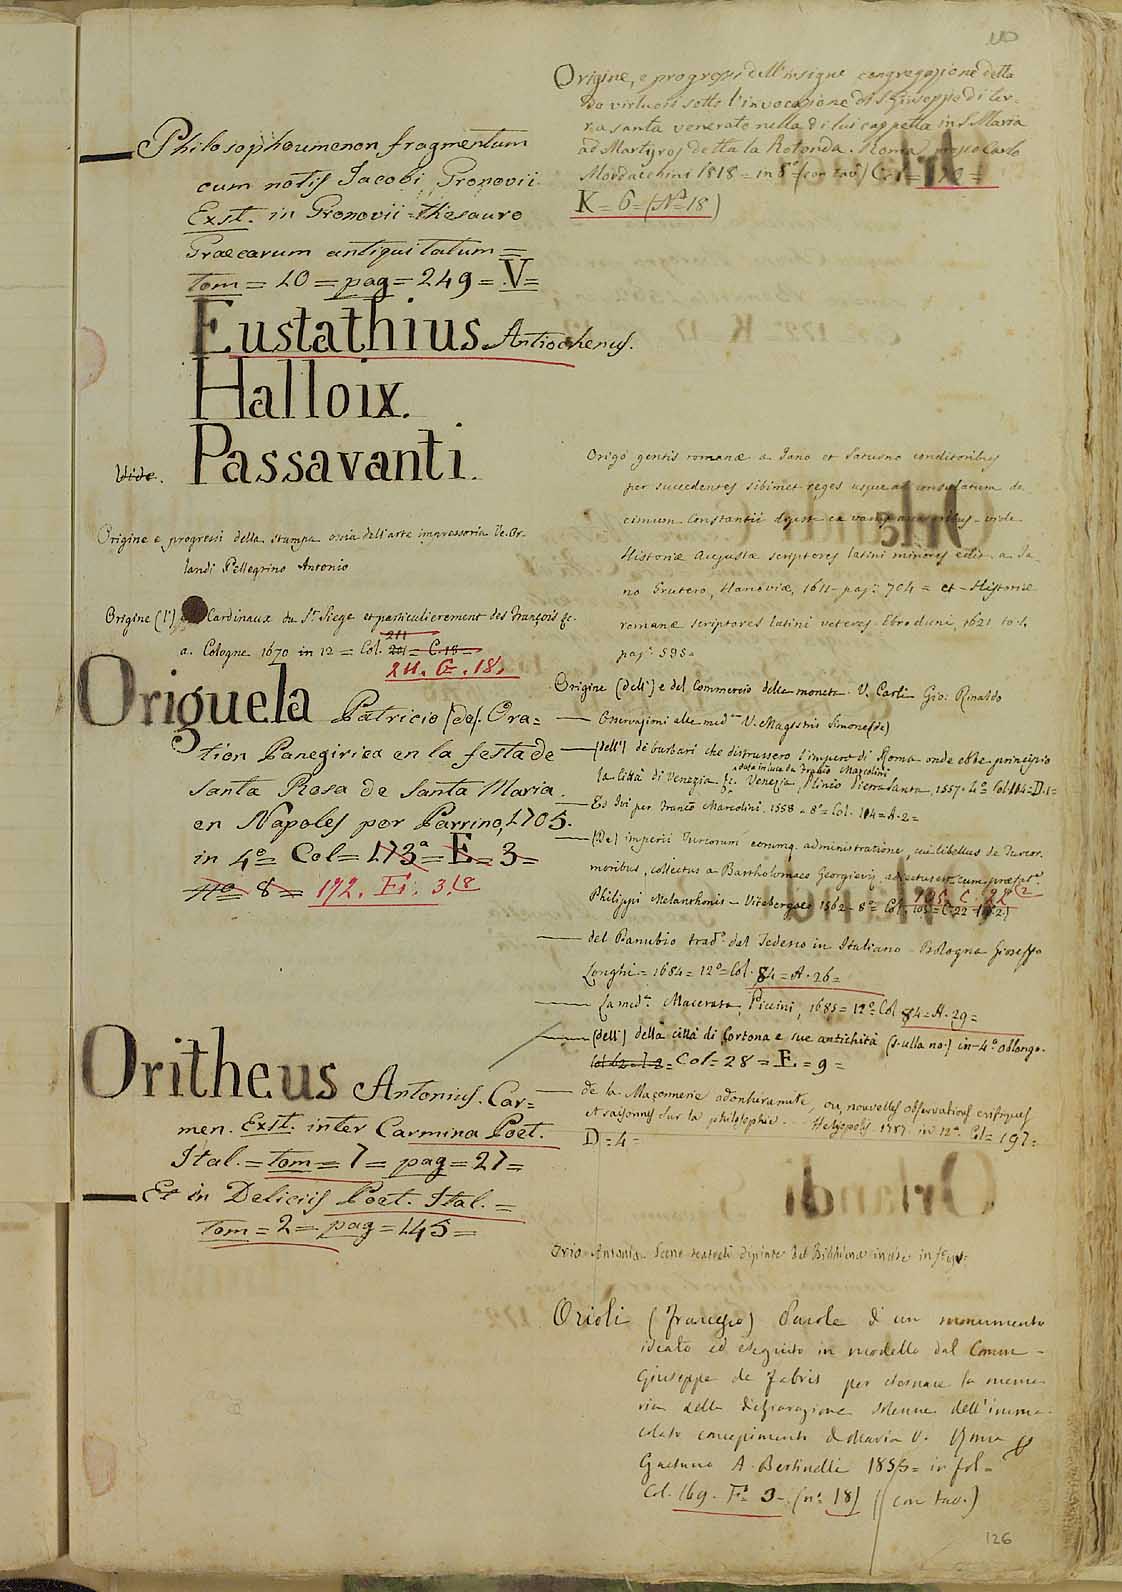 Philosophoumenon fragmentum
cum notis Jacobi Gronovii.
Exst. in Gronovii = thesauro
Graecarum antiquitatum =
tom = 10 = pag = 249 = V =
Eustathius Antiochenus.
Halloix.
Vide. Passavanti.
Origine e progressi della stampa osia dell'arte impressoria Ve. Or-
landi Pellegrino Antonio
Origine (l') Cardinaux du St. Siege et particulierement des François &c.
a. Cologne 1670 in 12 = Col. 211 = C. 18 =
211. G. 18.
Origuela Patricio (de). Ora=
tion Panegirica en la festa de
Santa Rosa de Santa Maria.
en Napoles por Parrino, 1705.
in 4º = Col = 173ª = E = 3 =
Nº 8 = 172. Fi. 3. (8
Oritheus Antonius. Car=
men. Exst. inter Carmina Poet.
Ital. = tom = 7 = pag = 27 =
Et in Deliciis Poet. Ital. =
tom = 2 = pag = 145 =
Origine, e progressi dell'insigne congregazione detta
de virtuosi sotto l'invocazione di S. Giuseppe di ter-
ra santa venerato nella di lui cappella in S. Maria
ad Martyres detta la Rotonda. Roma presso Carlo
Mordacchini 1818 = in 8º (con tav.)
K = 6 = (Nº 18)
Origo gentis romanæ a Jano et Saturno conditoribus
per succedentes sibimet reges usque ad consulatum de
cimum Constantii vide
Historiæ Augustæ scriptores latini minores edit. a Ja
no Grutero, Hanoviæ, 1611 - pag. 704 = et - Historiæ
romanæ scriptores latini veteres. Ebroduni, 1621 to. 1.
pag. 595.
Origine (dell') e del Commercio delle monete. V. Carli Gio. Rinaldo
— Osservazioni alle med.me V. Magistris Simone (de)
— (dell') di barbari che distrussero l'impero di Roma onde ebbe principio
data in luce da Franco Marcolini
la città di Venezia &c. Venezia, Plinio Pietrasanta, 1557. 4º Col. 104 = D. 1 =
— Et Ivi per Franco Marcolini. 1558 = 8º = Col. 104 = A. 2 =
— (De) imperii Turcorum eorumq. administratione, cui libellus de Turcor.
moribus, collectus a Bartholomaeo Georgieviz, adjectus est cum præfat.e
105. C. 22 (2
Philippi Melanthonis - Vitebergae 1562 - 8º = Col. 105 = C. 22
— del Danubio trad.º dal Tedesco in Italiano - Bologna Gioseffo
Longhi = 1684 = 12º = Col. 84 = A. 26 =
— La med.ª Macerata, Piccini, 1685 = 12º Col 84 = A. 29 =
— (dell') della città di Cortona e sue antichità (s. ulla no.) in-4º oblongo.
Col = 28 = E = 9 =
— de la Maçonnerie adonhiramite, ou nouvelles observations critiques
et raisonnes sur la philosophie Heliopolis 1787 in 12º. Col = 197 =
D = 4 =
Orio Antonia. Scene teatrali dipinte del Bibbiena incise in
Orioli (Francesco) Parole di un monumento
ideato ed eseguito in modello dal Comm -
Giuseppe de Fabris per eternare la memo-
ria della dichiarazione solenne dell'imma-
colato concepimento di Maria V. Roma
Gaetano A. Bertinelli 1855 = in fol =
Col. 169. Fi. 3. (nº. 18) (con tav.)
126